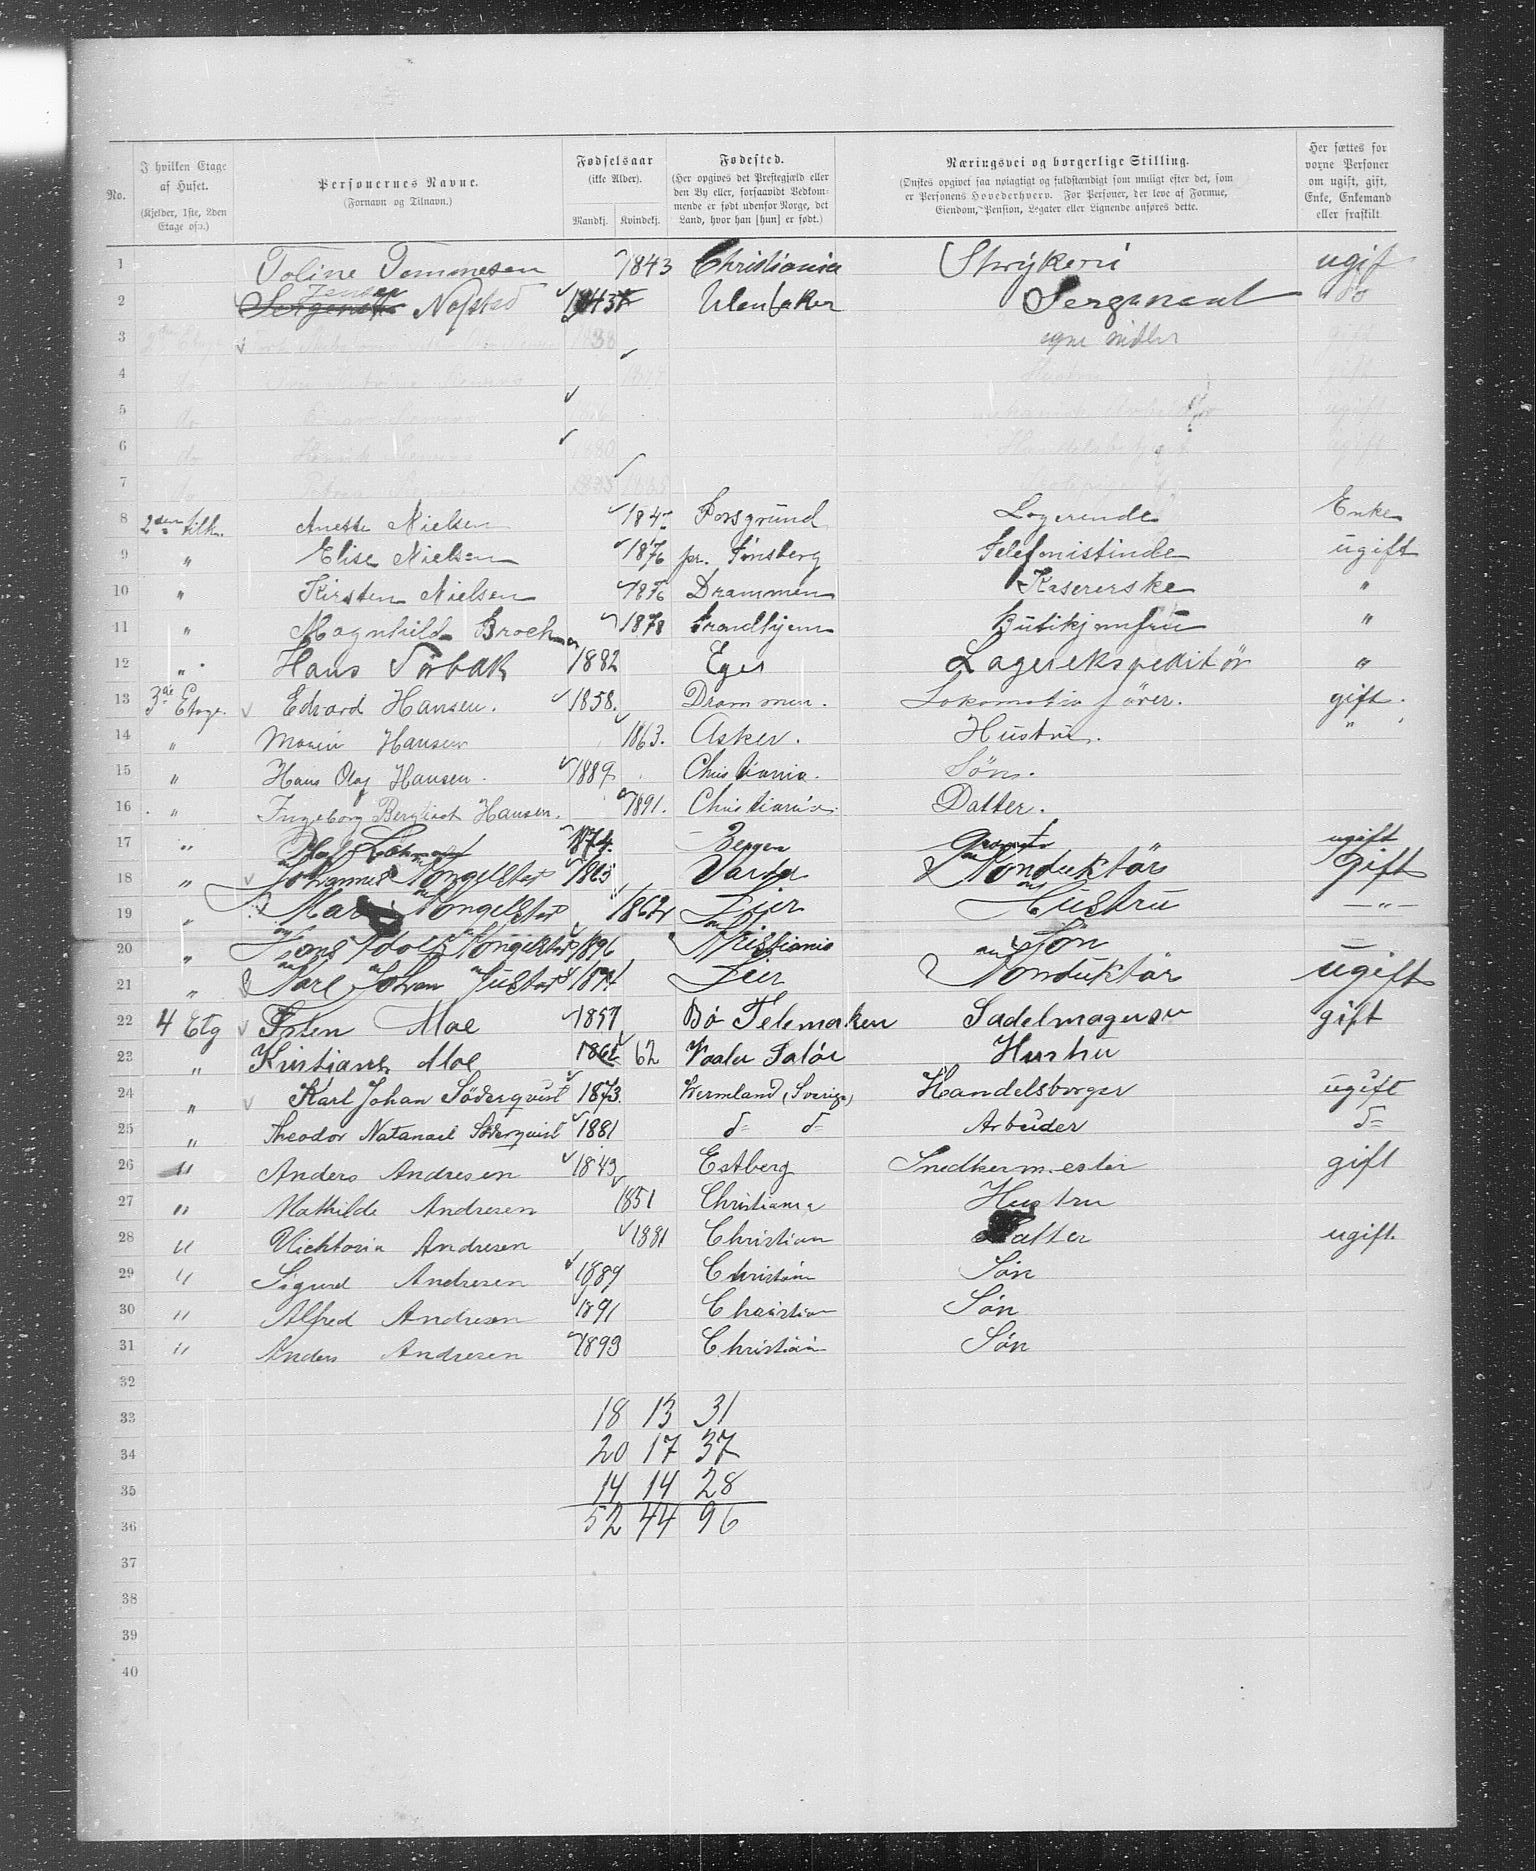 No.
I hvilken Etage af Huset. (Kjelder, 1ste, 2den Etage osv.)
Personernes Navne. (Fornavn og Tilnavn.)
Fødselsaar (ikke Alder). Mandkj. Kvindekj.
Fødested. (Her opgives det Prestegjæld eller den By eller, forsaavidt Vedkommende er født udenfor Norge, det Land, hvor han [hun] er født.)
Næringsvei og borgerlige Stilling. (Ønskes opgivet saa nøiagtigt og fuldstændigt som muligt efter det, som er Personens Hovederhverv. For Personer, der leve af Formue, Eiendom, Pension, Legater eller Lignende anføres dette.
Her sættes for voxne Personer om ugift, gift, Enke, Enkemand eller fraskilt
1 Toline Tommesen 1843 Christiania Strykeri ugif
2 Nafstad Ulensaker Sergeant do
3 2den Etage 1838 egne midler gift
4 do Hustru gift
5 do ugift
6 do Henrik 1880 ugift
7 do
8 2den tilh. Anette Nielsen 184 Porsgrund Logerende Enke
9 " Elise Nielsen 1876 pr. Tønsberg Telefonistinde ugift
10 " Kirsten Nielsen 1876 Drammen Kasererske "
11 " Magnhild Broch 1878 Trondhjem Butikjomfru "
12 " Hans Torbak 1882 Eger Lagerekspeditør "
13 3die Etage. Edvard Hansen. 1858. Drammen. Lokomotivfører. gift.
14 " Maria Hansen 1863. Asker. Hustru. "
15 " Hans Olaf Hansen. 1889 Christiania. Søn.
16 " Ingeborg Bergliot Hansen. 1891. Christiania. Datter.
17 " 1874. Bergen ugift
18 " Johannes Kongelstad 1865 Varda Konduktør gift
19 " Kongelstad 1862 Lier Hustru —"—
20 " Hans Adolf Kongelstad 1896 Kristiania Søn
21 " Karl Johan Gustad 1874 Lier Konduktør ugift
22 4 Etg Esten Moe 1857 Bø Telemarken Sadelmagersv gift
23 " Kristiane Moe 1862 62 Vaaler Solør Hustru
24 " Karl Johan Söderquist 1873. Wermland, (Sverige) Handelsborger ugift
25 " Theodor Natanael Söderquist 1881 d= d= Arbeider d=
26 " Anders Andresen 1843 Estberg Snedkermester gift
27 " Mathilde Andresen 1851 Christiania Hustru
28 " Vichtoria Andresen 1881 Christian Datter ugift
29 " Sigurd Andresen 1889 Christian Søn
30 " Alfred Andresen 1891 Christian Søn
31 " Anders Andresen 1893 Christian Søn
32
33 18 13 31
34 20 17 37
35 14 14 28
36 52 44 96
37
38
39
40